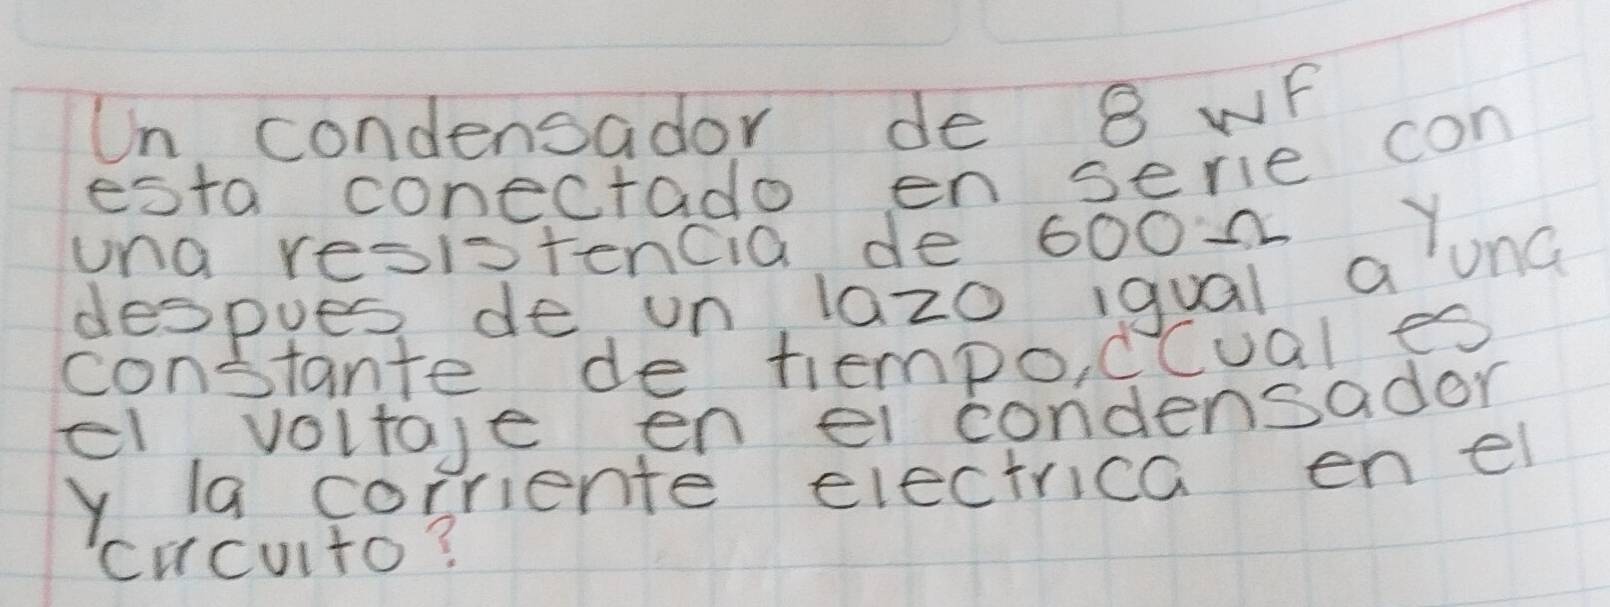 Un condensador de 8 wF
esta conectado en serie con
una resistencia de 600Ω y
despues de un lazo igual a una
constante de tiempo, ¿Cual es
el voltaje en el condensador
y la corriente electrica en el
circuito?